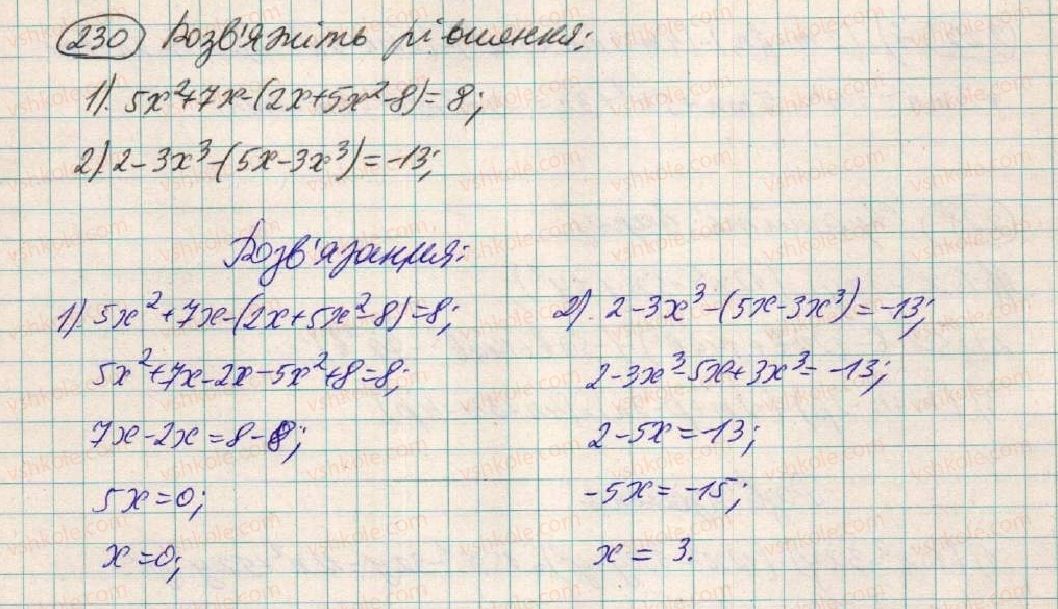 230 Розв'яжіть рівняння:
1). 5x²+7x-(2x+5x²-8)=8;
2) 2-3x³-(5x-3x³)=-13;
Розв'язання:
1). 5x²+7x-(2x+5x²-8)=8;
5x²+7x-2x-5x²+8=8;
7x-2x=8-8;
5x=0;
x=0;
2). 2-3x³-(5x-3x³)=-13;
2-3x³-5x+3x³=-13;
2-5x=-13;
-5x=-15;
x = 3.